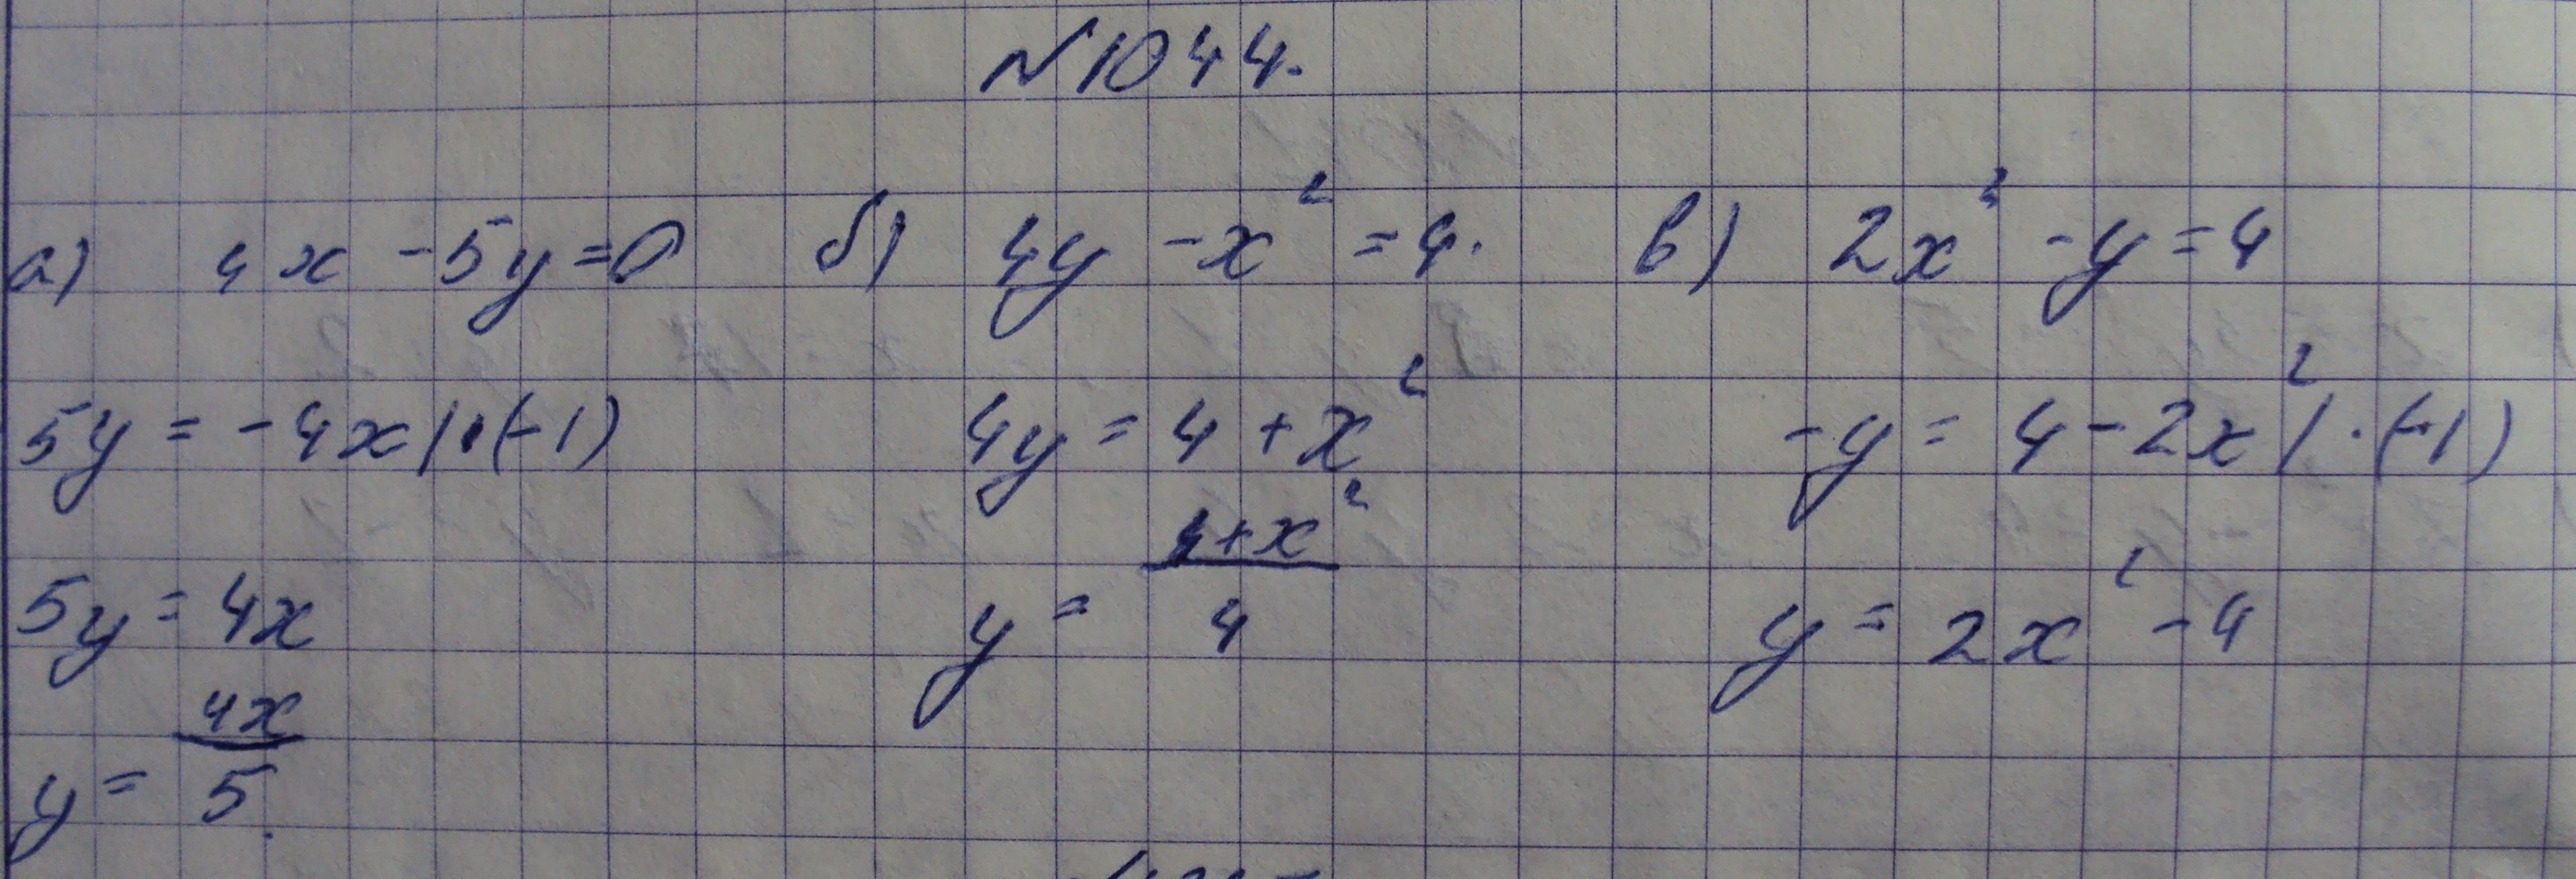 №1044.
а) 4x - 5y = 0
5y = -4x | · (-1)
5y = 4x
y = 4x/5.
б) 4y - x² = 4.
4y = 4 + x²
y = (4+x²)/4
в) 2x² - y = 4
-y = 4 - 2x² | · (-1)
y = 2x² - 4